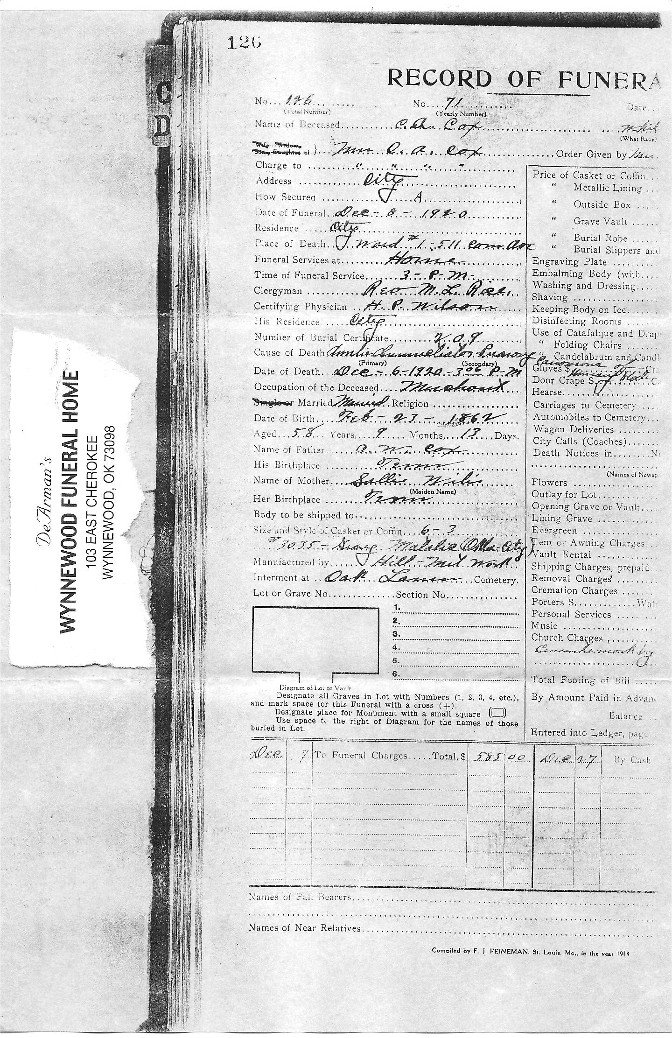 126
RECORD OF FUNERA
No. 126 No. 71 Date
(Total Number) (Yearly Number)
Name of Deceased C. A. Cox
(What Race)
Mrs. C. A. Cox Order Given by Mrs
Charge to " " " "
Address City
How Secured A
Date of Funeral Dec - 8 - 1920
Residence City
Place of Death Ward #1 - 511
Funeral Services at Home
Time of Funeral Service 3 - P. M.
Clergyman Rev M. L.
Certifying Physician H. P. Wilson
His Residence City
Number of Burial Certificate 209
Cause of Death
(Primary) (Secondary)
Date of Death Dec - 6 - 1920 - 3 00 P - M
Occupation of the Deceased Merchant
Single or Married Married Religion
Date of Birth Feb - 23 - 1862
Aged 58 Years 9 Months 13 Days
Name of Father Cox
His Birthplace Tenn
Name of Mother Sallie
(Maiden Name)
Her Birthplace Tenn
Body to be shipped to
Size and Style of Casket or Coffin 6 - 3
Okla City
Manufactured by
Interment at Oak Lawn Cemetery.
Lot or Grave No. Section No.
1.
2.
3.
4.
5.
6.
Diagram of Lot or Vault
Designate all Graves in Lot with Numbers (1, 2, 3, 4, etc.),
and mark space for this Funeral with a cross (+).
Designate place for Monument with a small square
Use space to the right of Diagram for the names of those
buried in Lot.
Price of Casket or Coffin
" Metallic Lining
" Outside Box
" Grave Vault
" Burial Robe
" Burial Slippers and
Engraving Plate
Embalming Body (with
Washing and Dressing
Shaving
Keeping Body on Ice
Disinfecting Rooms
Use of Catafalque and Drap
" Folding Chairs
" Candelabrum and Candl
Gloves $
Door Crape $
Hearse
Carriages to Cemetery
Automobiles to Cemetery
Wagon Deliveries
City Calls (Coaches)
Death Notices in N
(Names of Newsp
Flowers
Outlay for Lot
Opening Grave or Vault
Lining Grave
Evergreen
Tent or Awning Charges
Vault Rental
Shipping Charges, prepaid
Removal Charges
Cremation Charges
Porters $ Wat
Personal Services
Music
Church Charges
Total Footing of Bill
By Amount Paid in Advan
Balance
Entered into Ledger, page
Dec 7 To Funeral Charges Total, $ 585 00 Dec 27 By Cash
Names of Pall Bearers
Names of Near Relatives
Compiled by F. J. FEINEMAN, St. Louis, Mo., in the year 1914
De Arman's
WYNNEWOOD FUNERAL HOME
103 EAST CHEROKEE
WYNNEWOOD, OK 73098
C
D